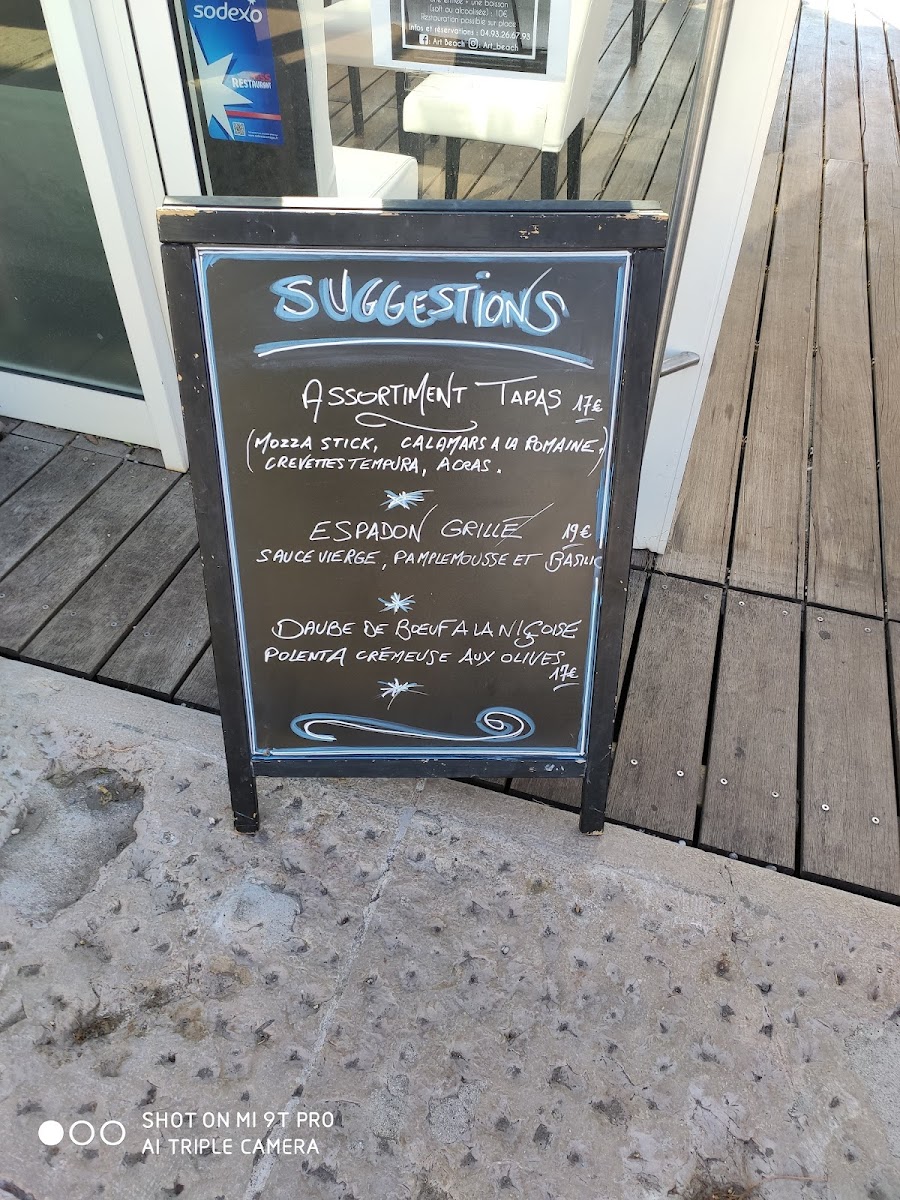 sodexo
RESTAURANT
une entrée + une boisson
(soft ou alcoolisée) : 10€
Restauration possible sur place
Infos et réservations : 04.93.26.67.93
: Art Beach : Art_beach
SUGGESTIONS
ASSORTIMENT TAPAS 17€
(MOZZA STICK, CALAMARS A LA ROMAINE,
CREVETTES TEMPURA, ACRAS.)
ESPADON GRILLÉ 19€
SAUCE VIERGE, PAMPLEMOUSSE ET BASILIC
DAUBE DE BŒUF A LA NIÇOISE
POLENTA CRÉMEUSE AUX OLIVES
17€
SHOT ON MI 9T PRO
AI TRIPLE CAMERA